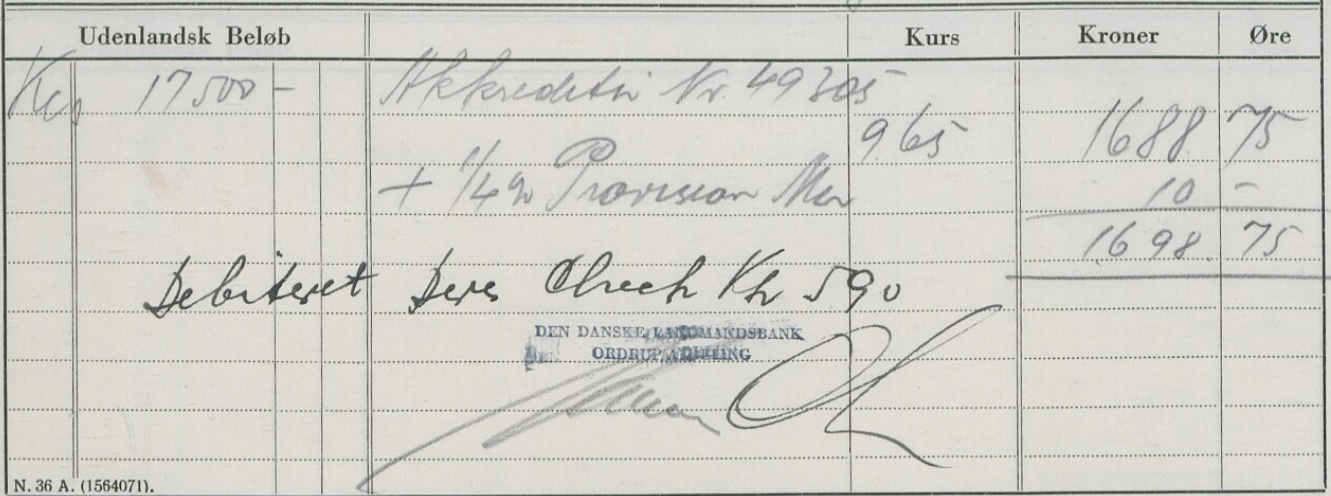 Udenlandsk Beløb Kurs Kroner Øre
Kcs 17500 - Akkreditiv Nr. 49305
965 1688 75
+ 1/4% Provision Min 10 -
1698. 75
Debiteret Deres Check Kr 590
DEN DANSKE LANDMANDSBANK
ORDRUP AFDELING
N. 36 A. (1564071).